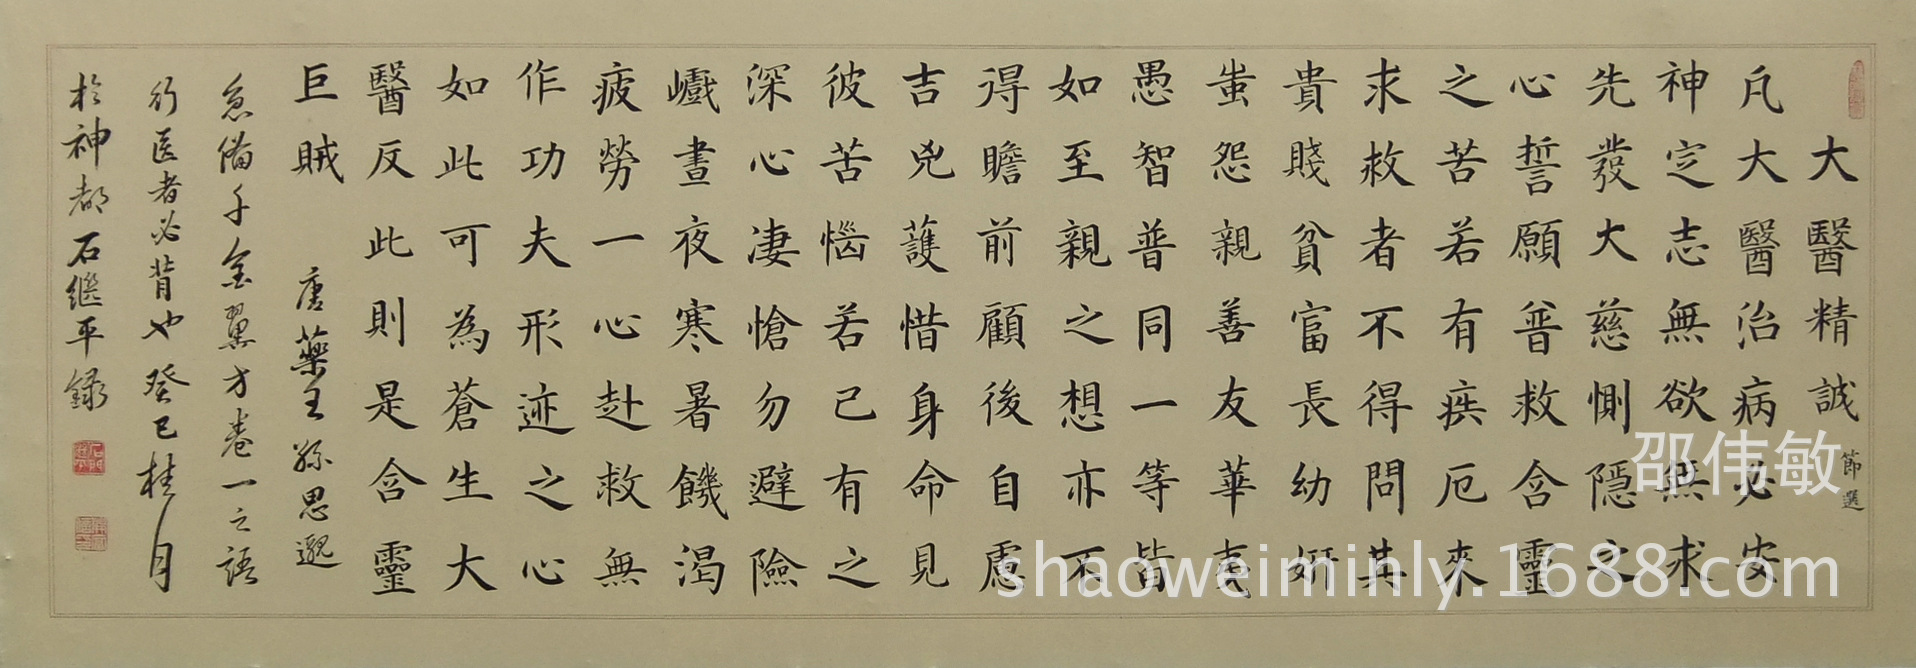 大醫精誠
節選
凡大醫治病必安
神定志無欲無求
先發大慈惻隱之
心誓願普救含靈
之苦若有疾厄來
求救者不得問其
貴賤貧富長幼妍
蚩怨親善友華夷
愚智普同一等皆
如至親之想亦不
得瞻前顧後自慮
吉兇護惜身命見
彼苦惱若己有之
深心凄愴勿避險
巇晝夜寒暑饑渴
疲勞一心赴救無
作功夫形迹之心
如此可為蒼生大
醫反此則是含靈
巨賊
唐藥王孫思邈
急備千金翼方卷一之語
行医者必背也癸巳桂月
於神都石继平錄
邵伟敏
shaoweiminly.1688.com